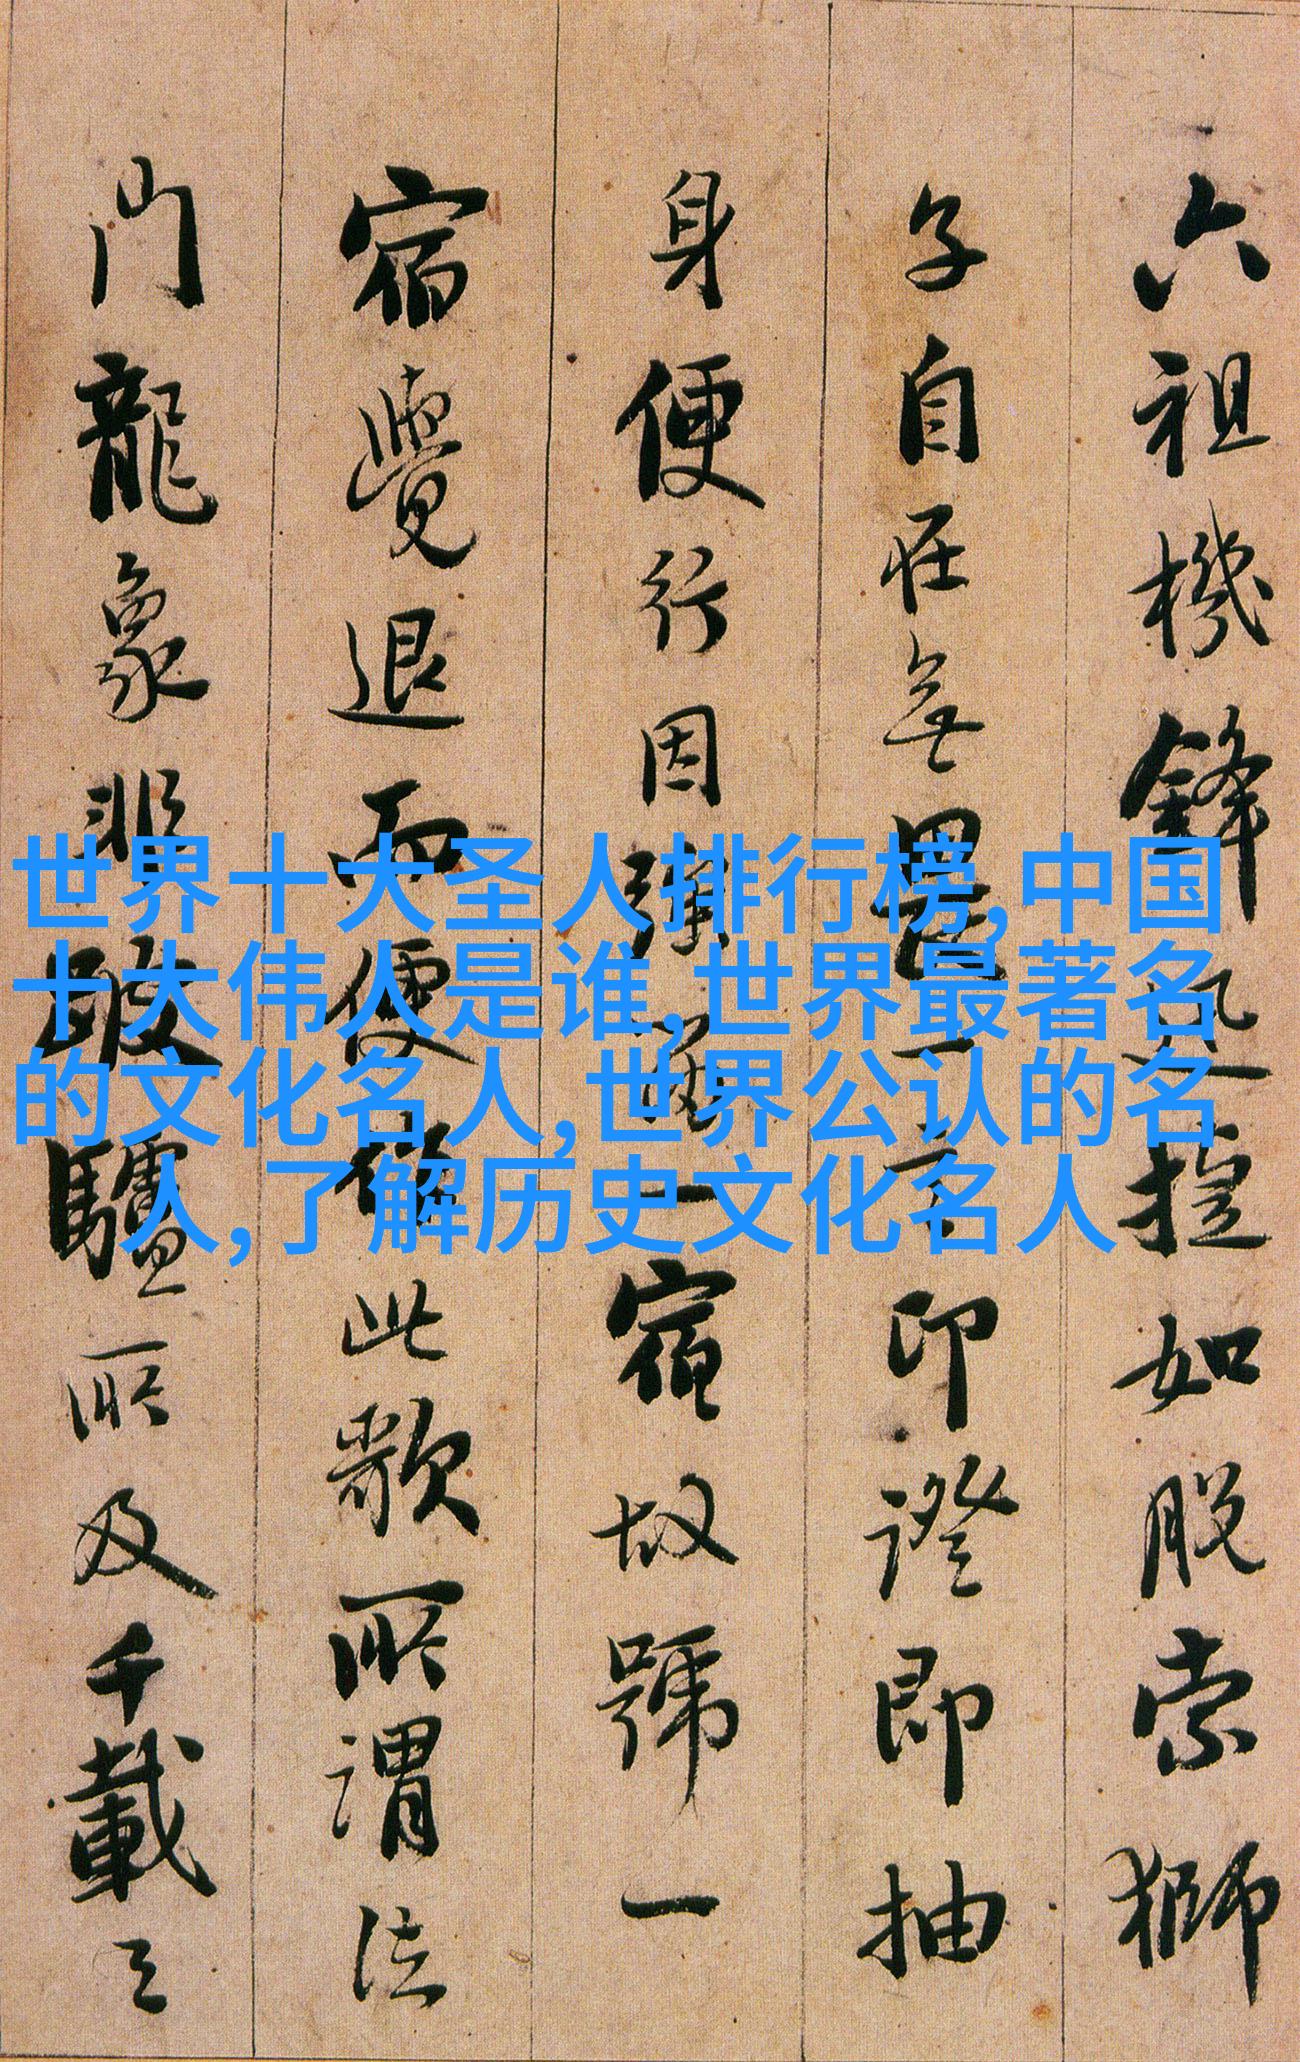 六祖機鋒迅捷如脫索獅
子自在無畏一言印證即抽
身便行因強留一宿故號一
宿覺退而便此歌所謂法
門龍象非跛驢所及千載之
世界十大圣人排行榜,中国
十大伟人是谁,世界最著名
的文化名人,世界公认的名
人,了解历史文化名人